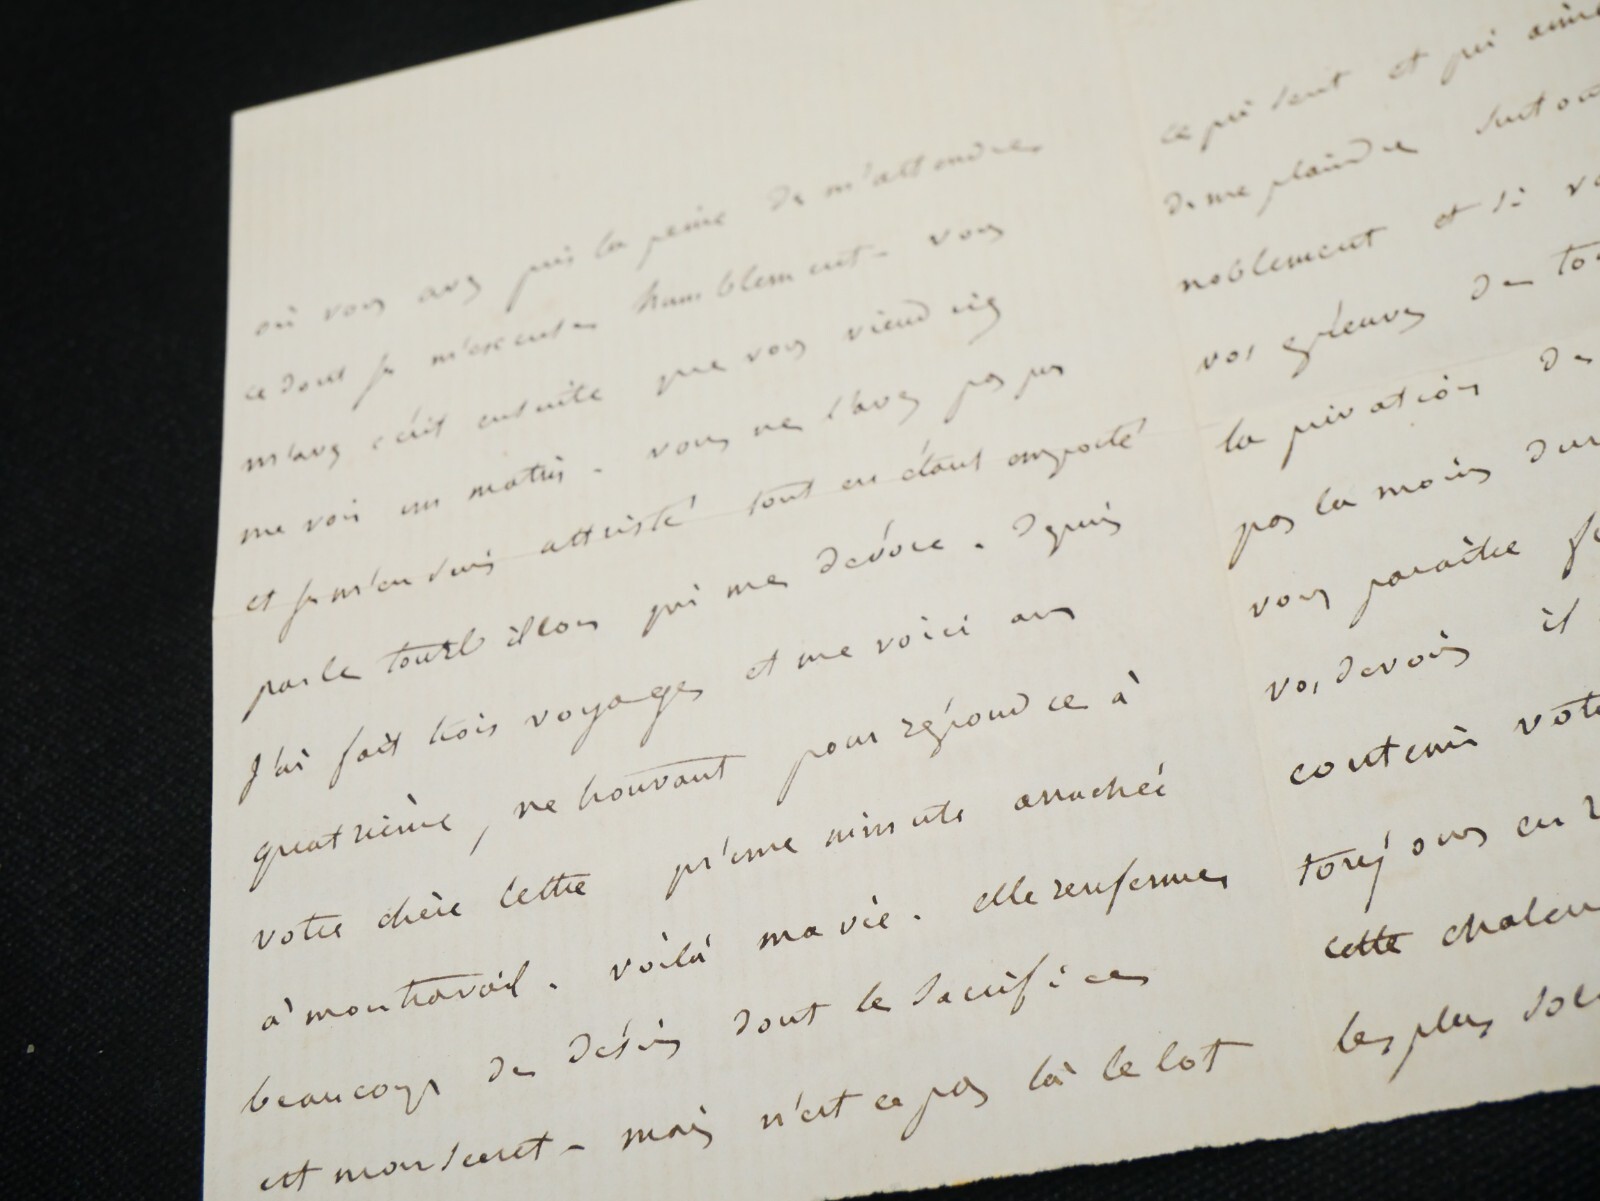 où vous avez pris la peine de m'attendre
ce dont je m'excuse humblement - vous
m'avez écrit ensuite que vous viendriez
me voir un matin. vous ne l'avez pas pu
et je m'en suis attristé tout en étant emporté
par le tourbillon qui me dévore. depuis
j'ai fait trois voyages et me voici au
quatrième, ne trouvant pour répondre à
votre chère lettre qu'une minute arrachée
à mon travail. voilà ma vie. elle renferme
beaucoup de désirs dont le sacrifice
est mon secret - mais n'est ce pas là le lot
ce qui sent et qui aime
de me plaindre surtout
noblement et si
vos épreuves de
la privation de
pas la moins dure
vous paraître
vos devoirs il
contenir votre
toujours en
cette chaleur
les plus